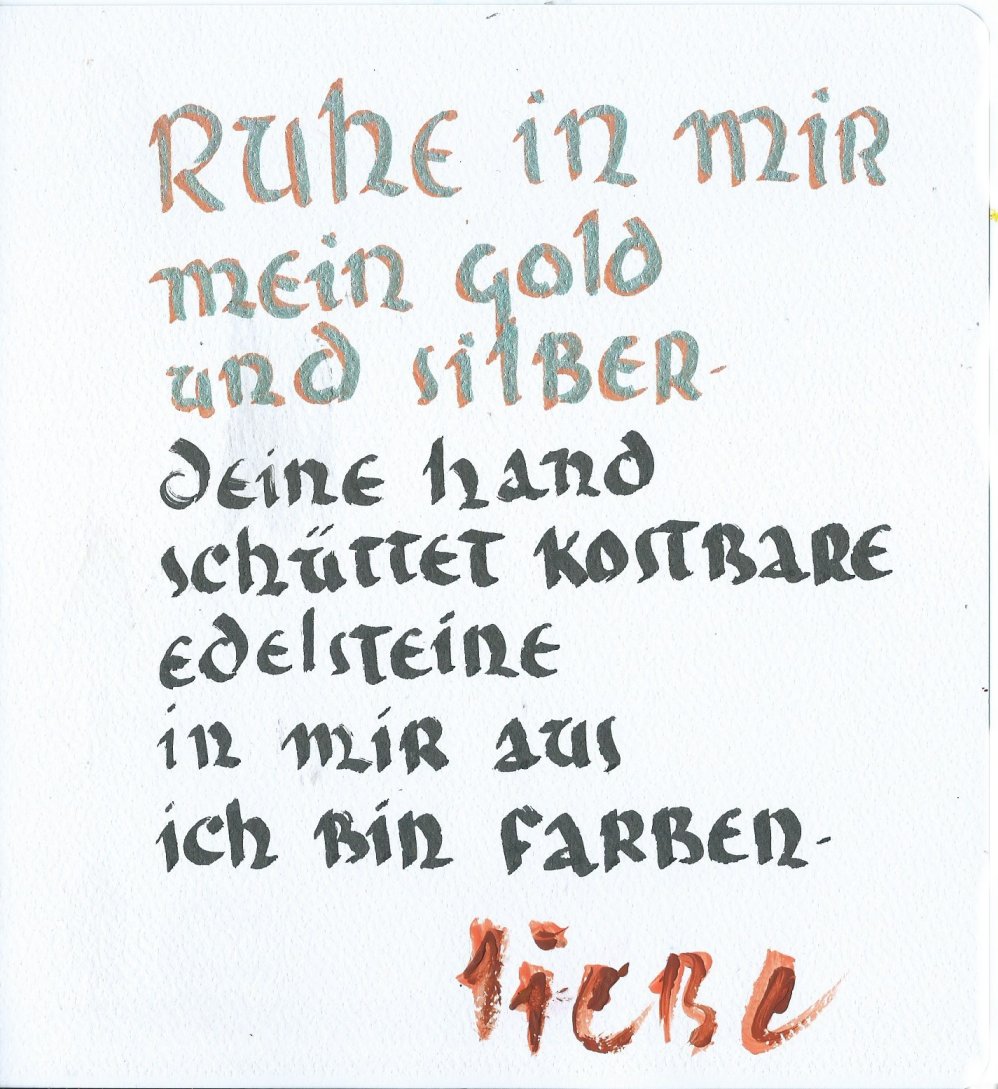 Ruhe in mir
mein gold
und silber-
deine hand
schüttet kostbare
edelsteine
in mir aus
ich bin farben-
liebe